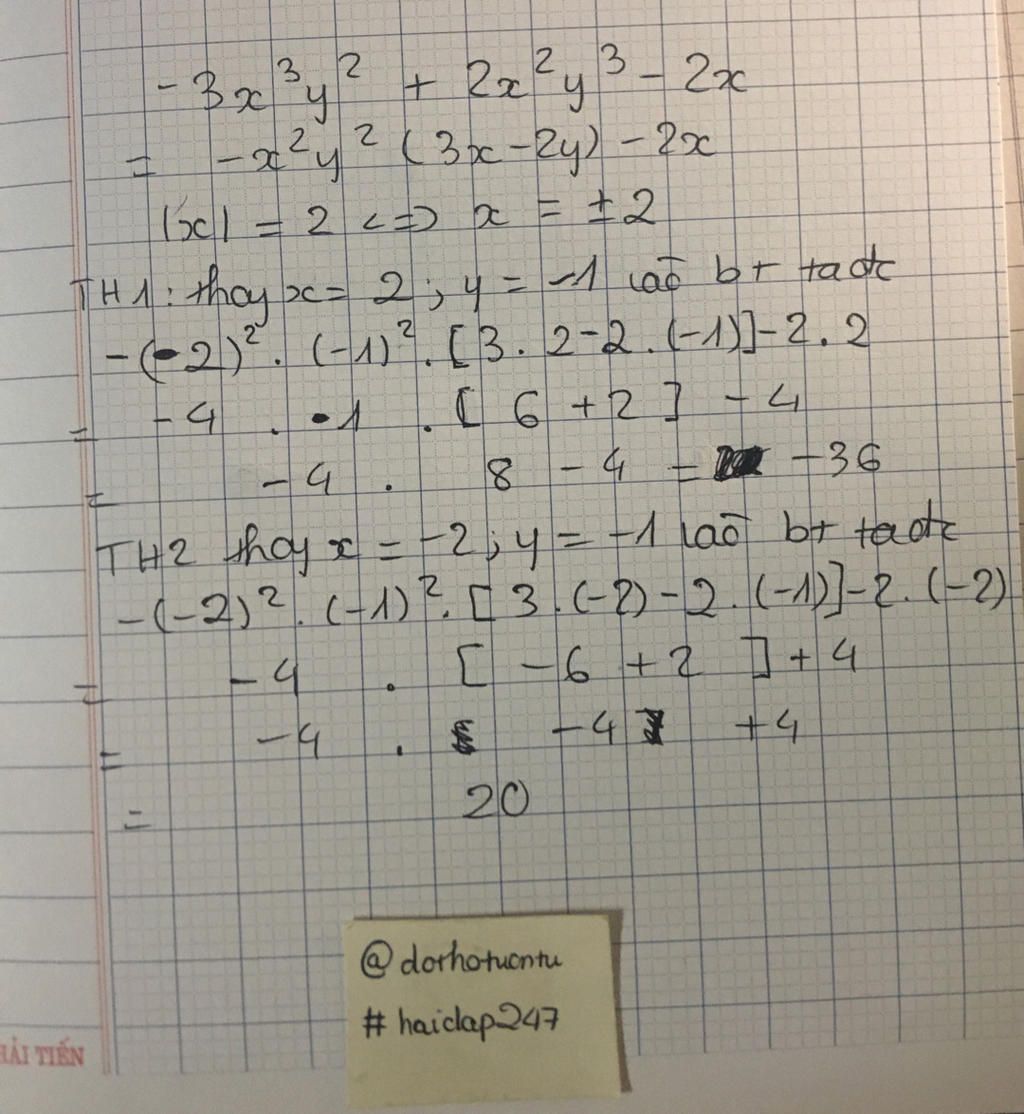 -3x³y² + 2x²y³ - 2x
= -x²y² (3x-2y) - 2x
|x| = 2 <=> x = ±2
TH1: thay x = 2; y = -1 vaò bt ta đc
-(-2)². (-1)². [3. 2-2. (-1)]-2.2
= -4 . -1 . [ 6 +2 ] -4
= -4 . 8 -4 = -36
TH2 thay x = -2; y = -1 vaò bt ta đc
-(-2)². (-1)². [3.(-2)-2.(-1)]-2.(-2)
= -4 . [ -6 +2 ] +4
= -4 . -4 +4
= 20
@dorhotuontu
#haidap247
HẢI TIẾN